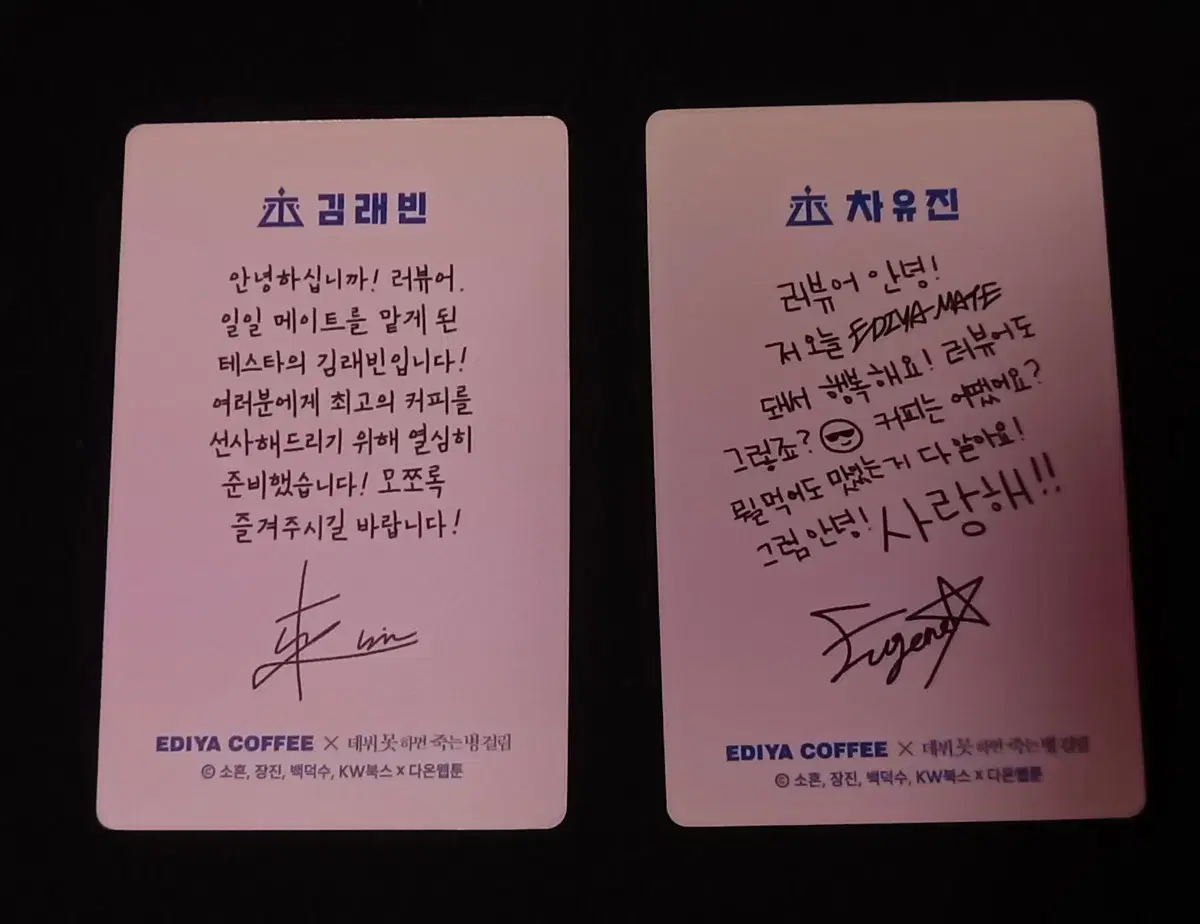 김래빈
안녕하십니까! 러뷰어.
일일 메이트를 맡게 된
테스타의 김래빈입니다!
여러분에게 최고의 커피를
선사해드리기 위해 열심히
준비했습니다! 모쪼록
즐겨주시길 바랍니다!
EDIYA COFFEE × 데뷔 못 하면 죽는 병 걸림
© 소흔, 장진, 백덕수, KW북스 x 다온웹툰
차유진
러뷰어 안녕!
저 오늘 EDIYA-MATE
돼서 행복해요! 러뷰어도
그렇죠? 😎 커피는 어땠어요?
뭘 먹어도 맛있는거 다 알아요!
그럼 안녕! 사랑해!!
Eugene
EDIYA COFFEE × 데뷔 못 하면 죽는 병 걸림
© 소흔, 장진, 백덕수, KW북스 x 다온웹툰